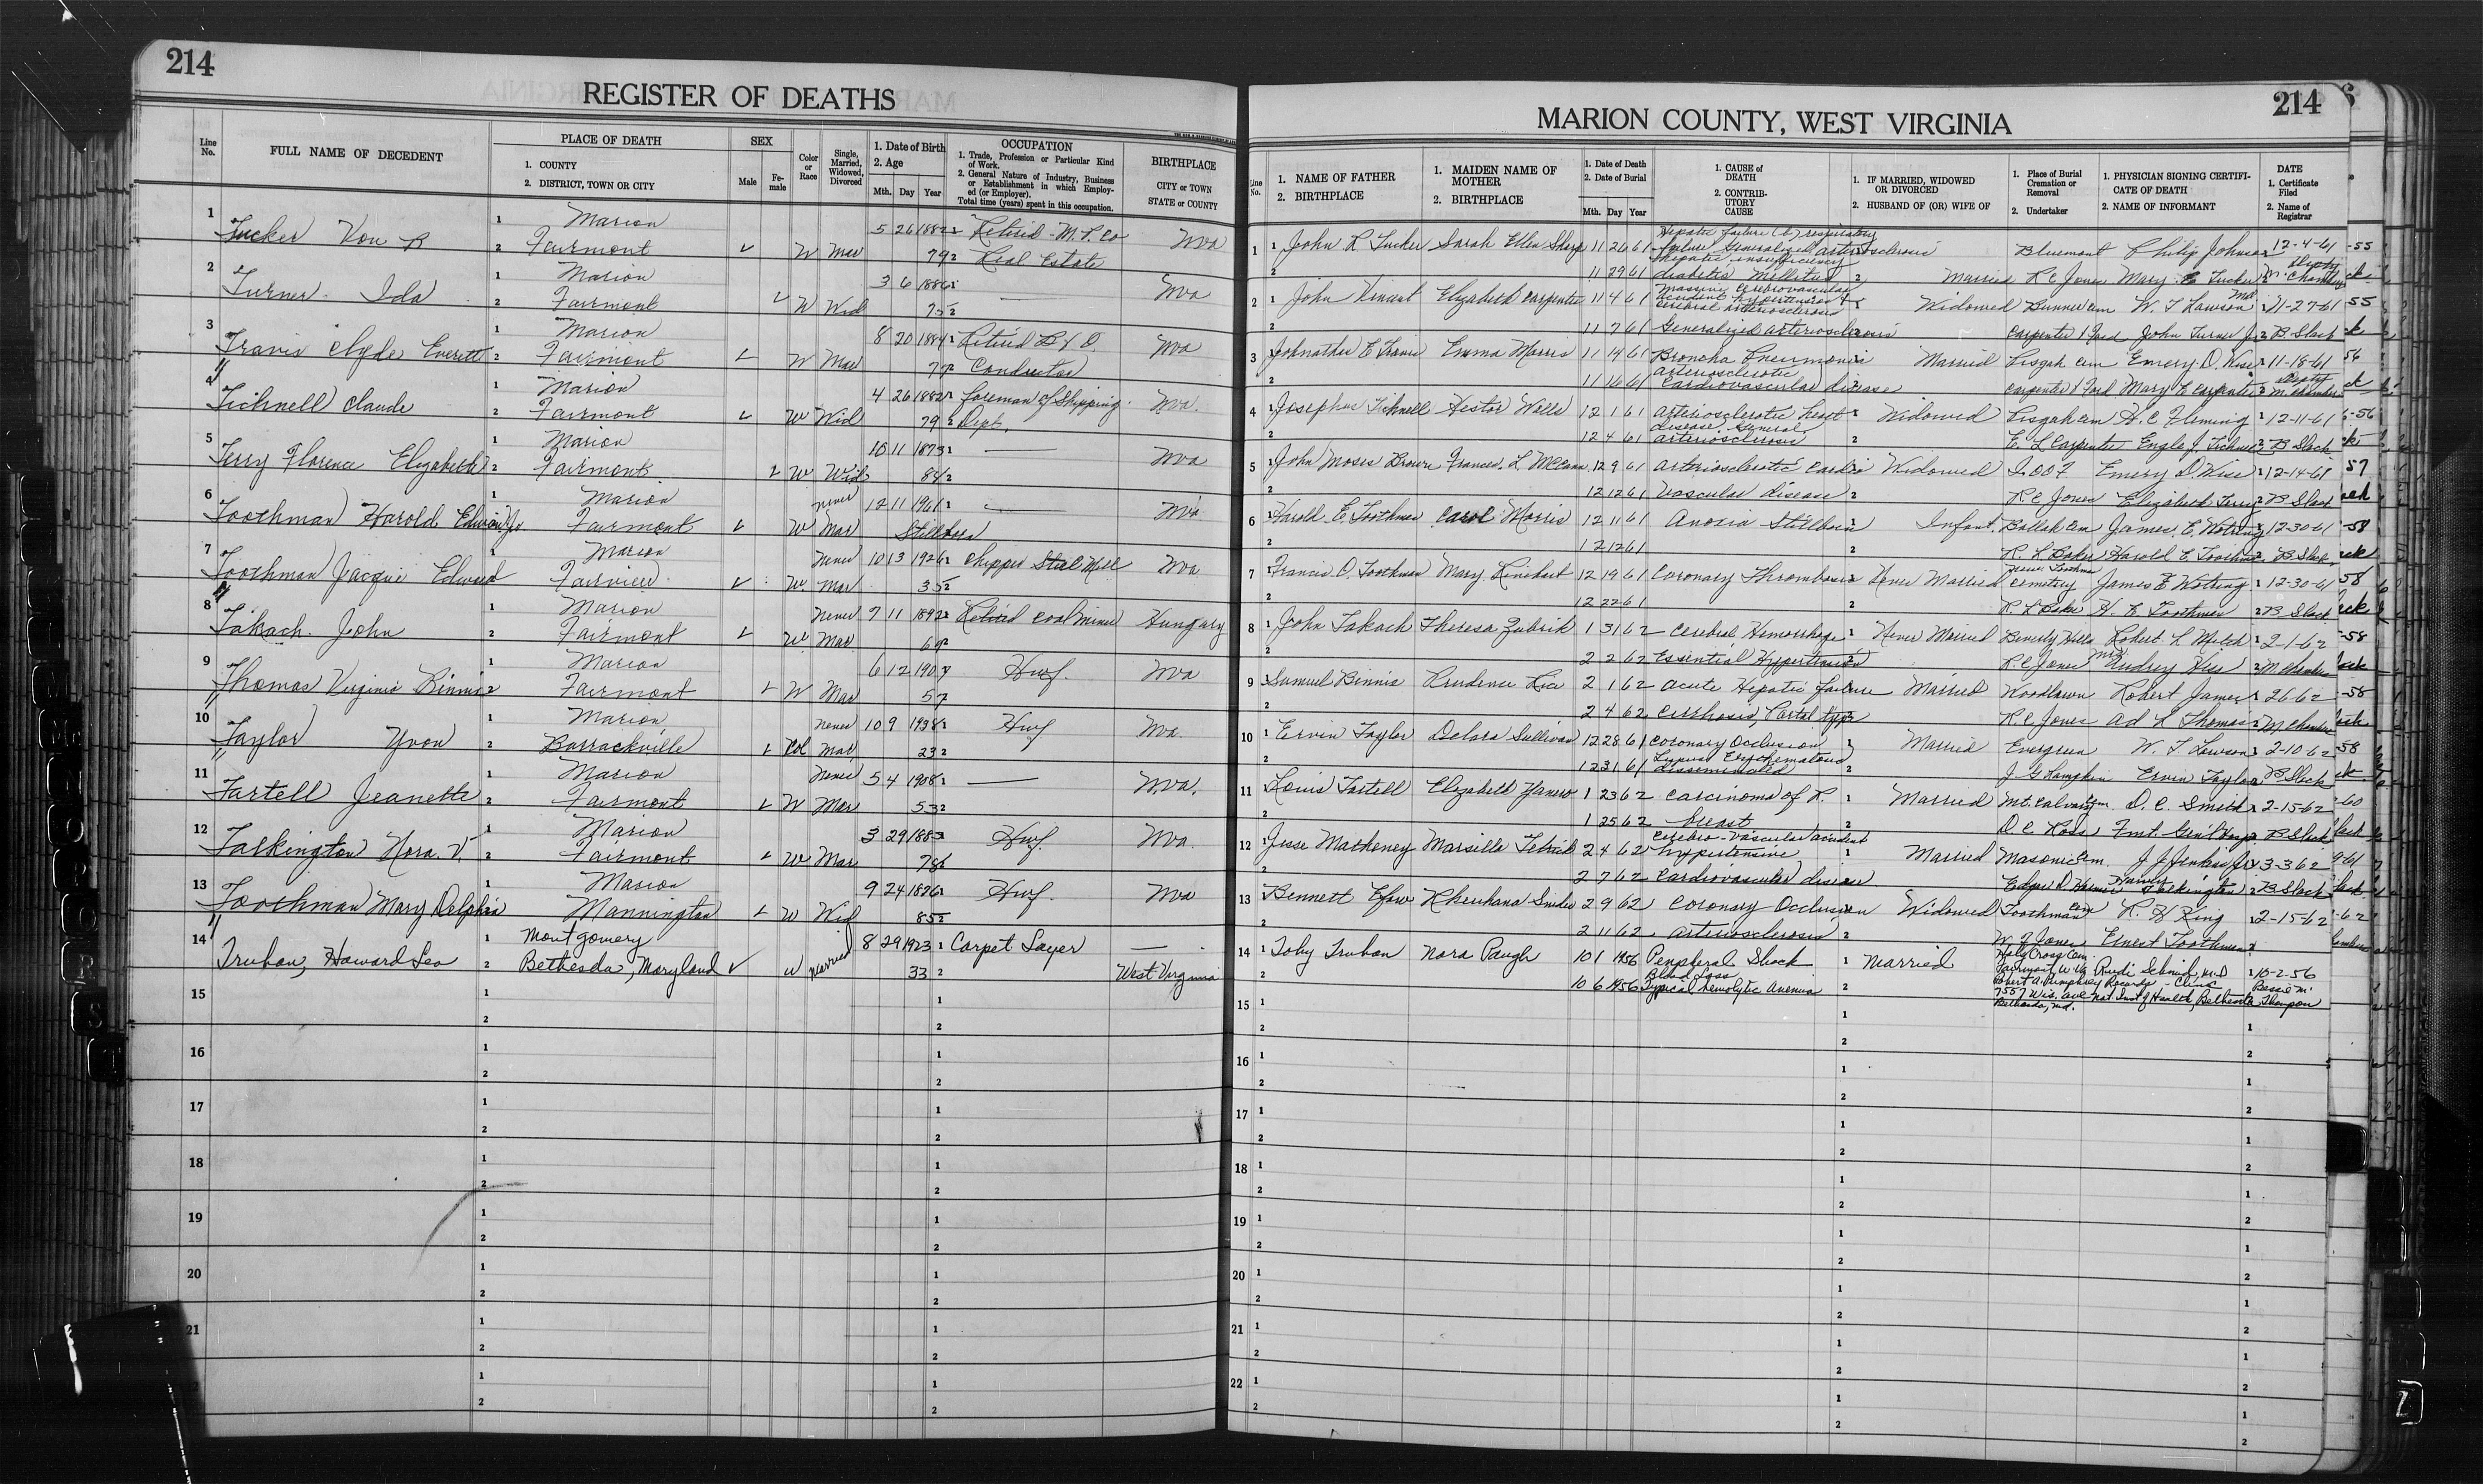 214
REGISTER OF DEATHS
Line No.
FULL NAME OF DECEDENT
PLACE OF DEATH
1. COUNTY
2. DISTRICT, TOWN OR CITY
SEX
Male
Female
Color or Race
Single, Married, Widowed, Divorced
1. Date of Birth
2. Age
Mth. Day Year
OCCUPATION
1. Trade, Profession or Particular Kind of Work.
2. General Nature of Industry, Business or Establishment in which Employed (or Employer).
Total time (years) spent in this occupation.
BIRTHPLACE
CITY or TOWN
STATE or COUNTY
1 Tucker Von B 1 Marion 5 26 1882 1 Retired - M. P. Co Wva
2 Fairmont ✓ W Mar 79 2 Real Estate
2 Turner Ida 1 Marion 3 6 1886 1 — Wva
2 Fairmont ✓ W Wid 75 2
3 Travis Clyde Everett 1 Marion 8 20 1884 1 Retired B & O Wva
2 Fairmont ✓ W Mar 77 2 Conductor
4 Tichnell Claude 1 Marion 4 26 1882 1 foreman of Shipping Wva.
2 Fairmont ✓ W Wid 79 2 Dept.
5 Terry Florence Elizabeth 1 Marion 10 11 1873 1 — Wva
2 Fairmont ✓ W Wid 2
6 Toothman Harold Edward Jr 1 Marion never 12 11 1961 1 — Wva
Fairmont ✓ W Mar Stillborn
7 Toothman Jacque Edward 1 Marion Never 10 13 1926 1 Chipper Steel Mill Wva
Fairview ✓ W. Mar 35 2
8 Takach John 1 Marion Never 7 11 1892 1 Retired Coal Miner Hungary
2 Fairmont ✓ W Mar 69 2
9 Thomas Virginia Binnis 1 Marion 6 12 1904 Hwf. Wva
2 Fairmont ✓ W Mar 57
10 Taylor Yvon 1 Marion never 10 9 1938 1 Hwf Wva.
2 Barrackville ✓ Col Mar 23 2
11 Tartell Jeanette 1 Marion Never 5 4 1908 1 — Wva.
2 Fairmont ✓ W Mar 53 2
12 Talkington Nora V. 1 Marion 3 29 1883 Hwf. Wva.
2 Fairmont ✓ W Mar 78
13 Toothman Mary Delphia 1 Marion 9 24 1876 1 Hwf. Wva
Mannington ✓ W Wid 85 2
14 Truban, Howard Leo 1 Montgomery 8 29 1923 1 Carpet Layer —
2 Bethesda, Maryland ✓ W Married 33 2 West Virginia
15
16
17
18
19
20
21
MARION COUNTY, WEST VIRGINIA
214
Line No.
1. NAME OF FATHER
2. BIRTHPLACE
1. MAIDEN NAME OF MOTHER
2. BIRTHPLACE
1. Date of Death
2. Date of Burial
Mth. Day Year
1. CAUSE of DEATH
2. CONTRIBUTORY CAUSE
1. IF MARRIED, WIDOWED OR DIVORCED
2. HUSBAND OF (OR) WIFE OF
1. Place of Burial Cremation or Removal
2. Undertaker
1. PHYSICIAN SIGNING CERTIFICATE OF DEATH
2. NAME OF INFORMANT
DATE
1. Certificate Filed
2. Name of Registrar
1 1 John R Tucker Sarah Ellen Sharp 11 26 61 Hepatic failure (b) respiratory failure Generalized arteriosclerosis Bluemont Philip Johnson 12-4-61
2 11 29 61 Hepatic insufficiency diabetis Mellitus 2 Married R C Jones Mary E Tucker
2 1 John Vincent Elizabeth Carpenter 11 4 61 Massive Cerebrovascular accident hypertension & cerebral arteriosclerosis Widowed Bunner cem W. T Lawson Md. 11-27-61
2 11 7 61 Generalized arteriosclerosis Carpenter & Ford John Turner Jr 2 B Slack
3 1 Johnathan E Travis Emma Morris 11 14 61 Broncho Pneumonia Married Pisgah cem Emery D. Wise 11-18-61
2 11 16 61 arteriosclerotic Cardiovascular disease Carpenter & Ford Mary E Carpenter
4 1 Josephus Tichnell Hester Wills 12 1 61 arteriosclerotic heart disease, General 1 Widowed Pisgah cem A. C Fleming 12-11-61
2 12 4 61 arteriosclerosis 2 E. L Carpenter Engle J. Tichnell 2 B Slack
5 1 John Moses Brown Frances L McCann 12 9 61 arteriosclerotic cardio Widowed I.OOF Emery D. Wise 12-14-61
2 12 12 61 Vascular disease 2 R C Jones Elizabeth Terry 2 B Slack
6 1 Harold E. Toothman Carol Morris 12 11 61 Anoxia Stillborn Infant. James E. Wotring 12-30-61
2 12 12 61 2 R. L. Baker Harold E Toothman 2 B Slack
7 1 Francis O. Toothman Mary Rinehart 12 19 61 Coronary Thrombosis Never Married Cemetery James E Wotring 12-30-61
2 12 22 61 2 R L Baker H. E Toothman 2 B Slack
8 1 John Takach Theresa Zubrik 1 31 62 Cerebral Hemorrhage 1 Never Married Beverly Hills Robert L Mitch 2-1-62
2 2 2 62 Essential Hypertension R C Jones Mrs Audrey Hiss
9 1 Samuel Binnis Prudence Rice 2 1 62 Acute Hepatic Failure Married Woodlawn Robert James 2 6 62
2 2 4 62 Cirrhosis, Portal type R. C Jones Ad L Thomas
10 1 Ervin Taylor Delora Sullivan 12 28 61 Coronary Occlusion Married Evergreen W. T Lawson 2-10-62
2 12 31 61 Lupus Erythematous disseminated 2 J G Lampkin Ervin Taylor 2 B Slack
11 1 Louis Tartell Elizabeth Yanero 1 23 62 Carcinoma of R. 1 Married Mt. Calvary Cem. D. C. Smith 2-15-62
2 1 25 62 breast 2 D C Ross Fmt. Gen'l Hosp 2 B Slack
12 1 Jesse Matheney Marsille Tetrick 2 4 62 Cerebro-Vascular accident hypertensive 1 Married Masonic Cem. J J Jenkins Jr 3-3-62
2 2 7 62 Cardiovascular disease Harvey Talkington 2 B Slack
13 1 Bennett Efaw Rheuhana Snider 2 9 62 Coronary Occlusion Widowed Toothman Cem R. H King 2-15-62
2 2 11 62 arteriosclerosis 2 W. J Jones Ernest Toothman 2
14 1 Toby Truban Nora Paugh 10 1 1956 Peripheral Shock 1 Married Holy Cross Cem. Fairmont, W. Va Rudi Schmid, M.D 10-2-56
2 10 6 1956 Blood Loss Typical hemolytic Anemia 2 Robert A. Pumphrey Records - Clinic Bessie M.
7557 Wis. Ave Nat. Inst of Health, Bethesda Thompson
Bethesda, Md.
15
16
17
18
19
20
21
22